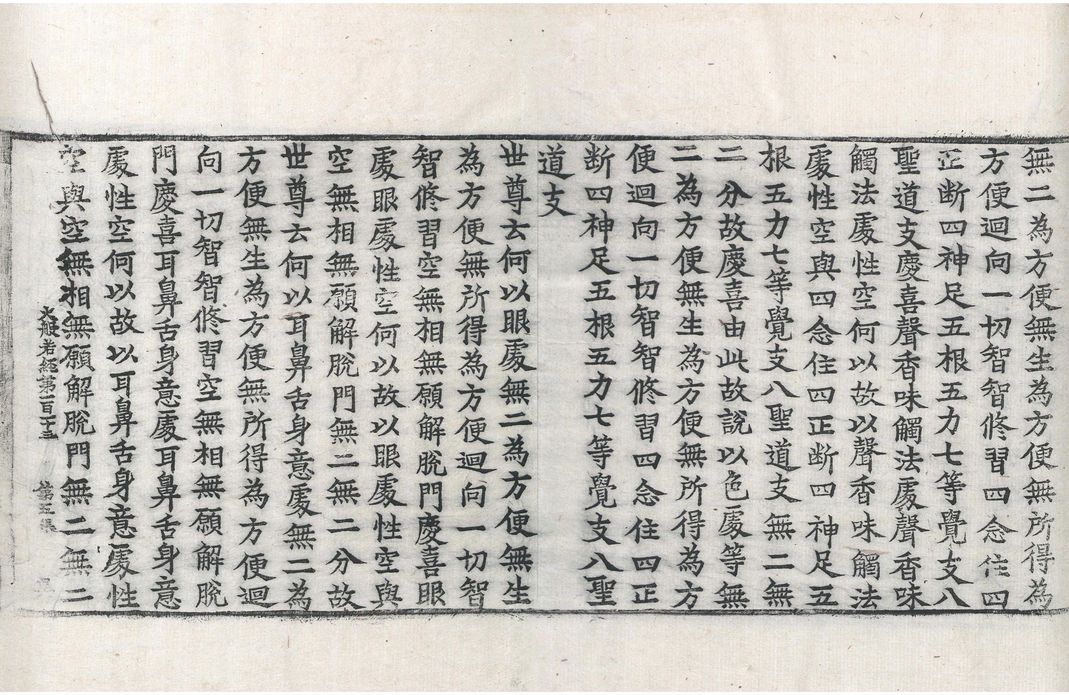 無二為方便無生為方便無所得為
方便迴向一切智智修習四念住四
正断四神足五根五力七等覺支八
聖道支慶喜聲香味觸法處聲香味
觸法處性空何以故以聲香味觸法
處性空與四念住四正断四神足五
根五力七等覺支八聖道支無二無
二分故慶喜由此故說以色處等無
二為方便無生為方便無所得為方
便迴向一切智智修習四念住四正
断四神足五根五力七等覺支八聖
道支
世尊云何以眼處無二為方便無生
為方便無所得為方便迴向一切智
智修習空無相無願解脫門慶喜眼
處眼處性空何以故以眼處性空與
空無相無願解脫門無二無二分故
世尊云何以耳鼻舌身意處無二為
方便無生為方便無所得為方便迴
向一切智智修習空無相無願解脫
門慶喜耳鼻舌身意處耳鼻舌身意
處性空何以故以耳鼻舌身意處性
大般若經第一百十五 第五張
空與空無相無願解脫門無二無二